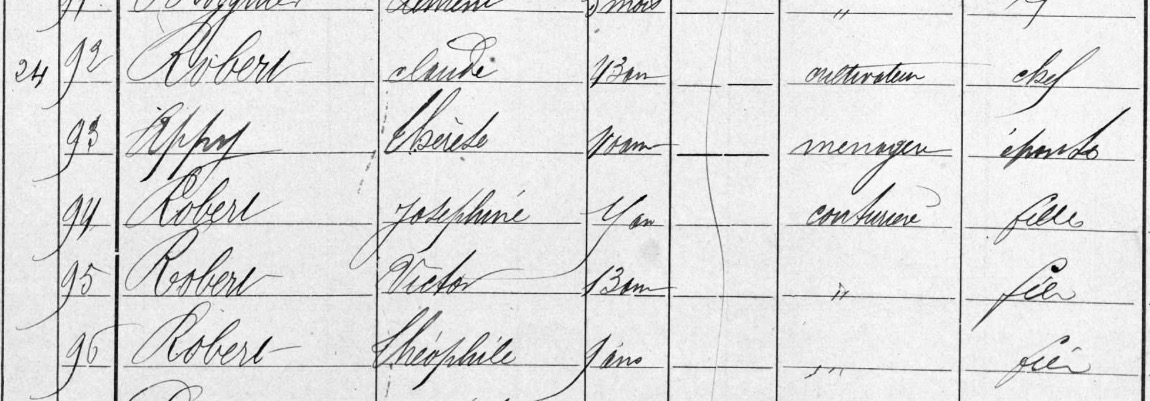 91 3 mois "
24 92 Robert claude 43 an cultivateur chef
93 Appy Thérèse 40 an menagere épouse
94 Robert Josephine couturiere fille
95 Robert Victor 13 an " fils
96 Robert Théophile 9 ans " fils